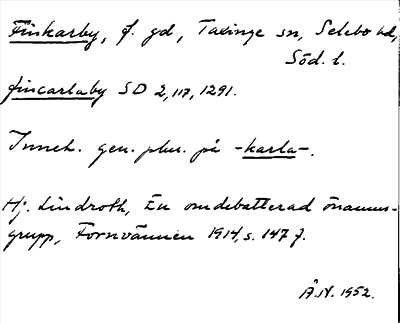 Finkarby, f. gd, Taxinge sn, Selebo hd,
Söd. l.
fincarlaby SD 2,117,1291.
Inneh. gen. plur. på -karla-.
Hj. Lindroth, En omdebatterad önamns-
grupp, Fornvännen 1914, s. 147 f.
Å.N. 1952.